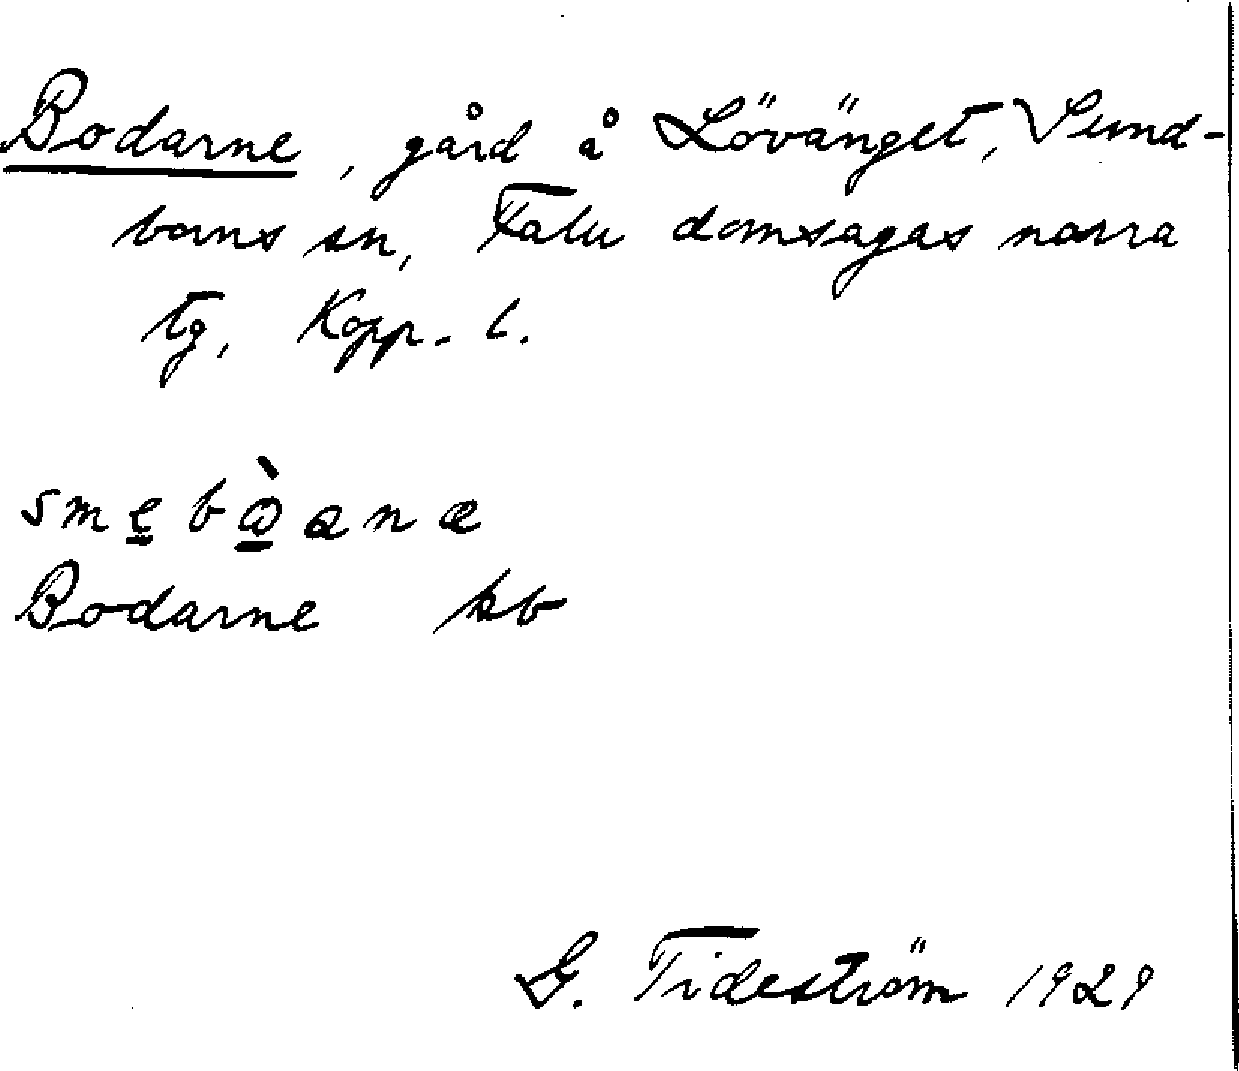 Bodarne, gård å Lövänget, Sund-
borns sn, Falu domsagas norra
tg, Kopp. l.
Bodarne kb
G. Tideström 1929